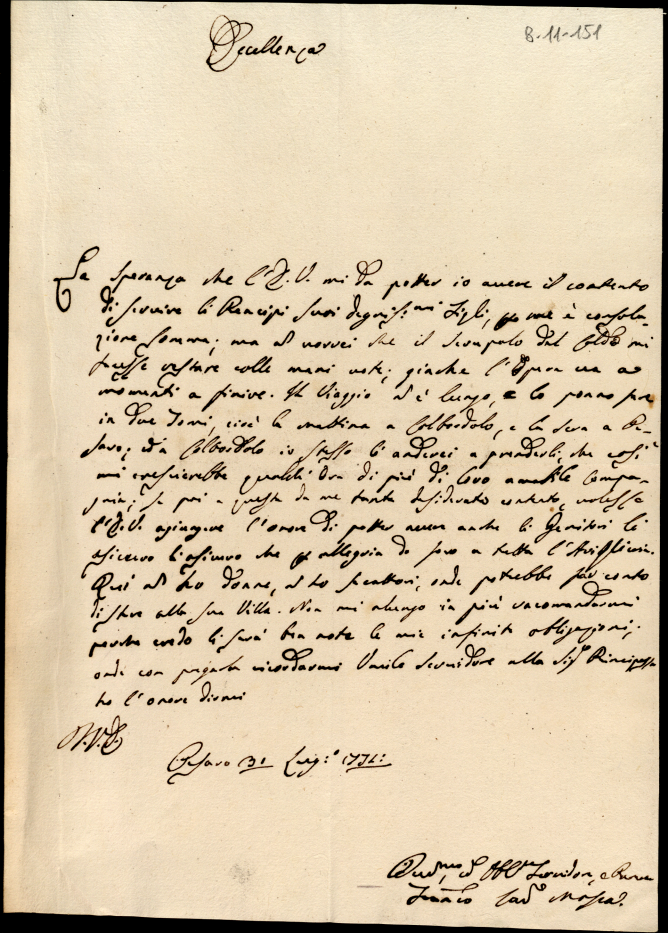 Eccellenza
8-11-151
La speranza che l'E.V. mi da potter io avere il contento
di servire li Principi suoi degnis:mi Figli, me è consola-
zione somma; ma non vorrei che il scrupolo del Caldo mi
facesse restare colle mani vote; giache l'Opera va a
momenti a finire. Il Viaggio n'è lungo, e lo ponno fare
in due Torni, cioè la mattina a Colbordolo, e la sera a Pe-
saro; ed a Colbordolo io stesso li anderei a prenderli, che così
mi crescierebbe qualch'Ora di più di loro amabile Compa-
gnia; se poi a questo da me tanto desiderato contento, volesse
l'E.V. agiungere l'onore di potter avere anche li Genitori le
asicuro che allegria da fare a tutta
Qui ne ho donne, ne ho secattori, onde potrebbe far conto
di stare alla sua Villa. Non mi alungo in più racomandarmi
perche credo li sarà ben note le mie infinite obligazioni;
onde con pregarla ricordarmi Umile Servidore alla Sig.ra Principessa
ho l'onore dirmi
D.V.E.
Pesaro 31 Lug:o
Dev.mo, ed Obb.mo Servidore, e
Fran.co Mosca.